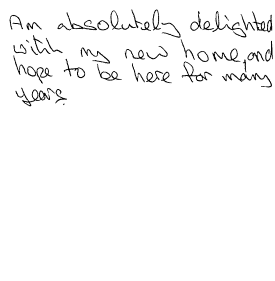 Am absolutely delighted
with my new home, and
hope to be here for many
years.